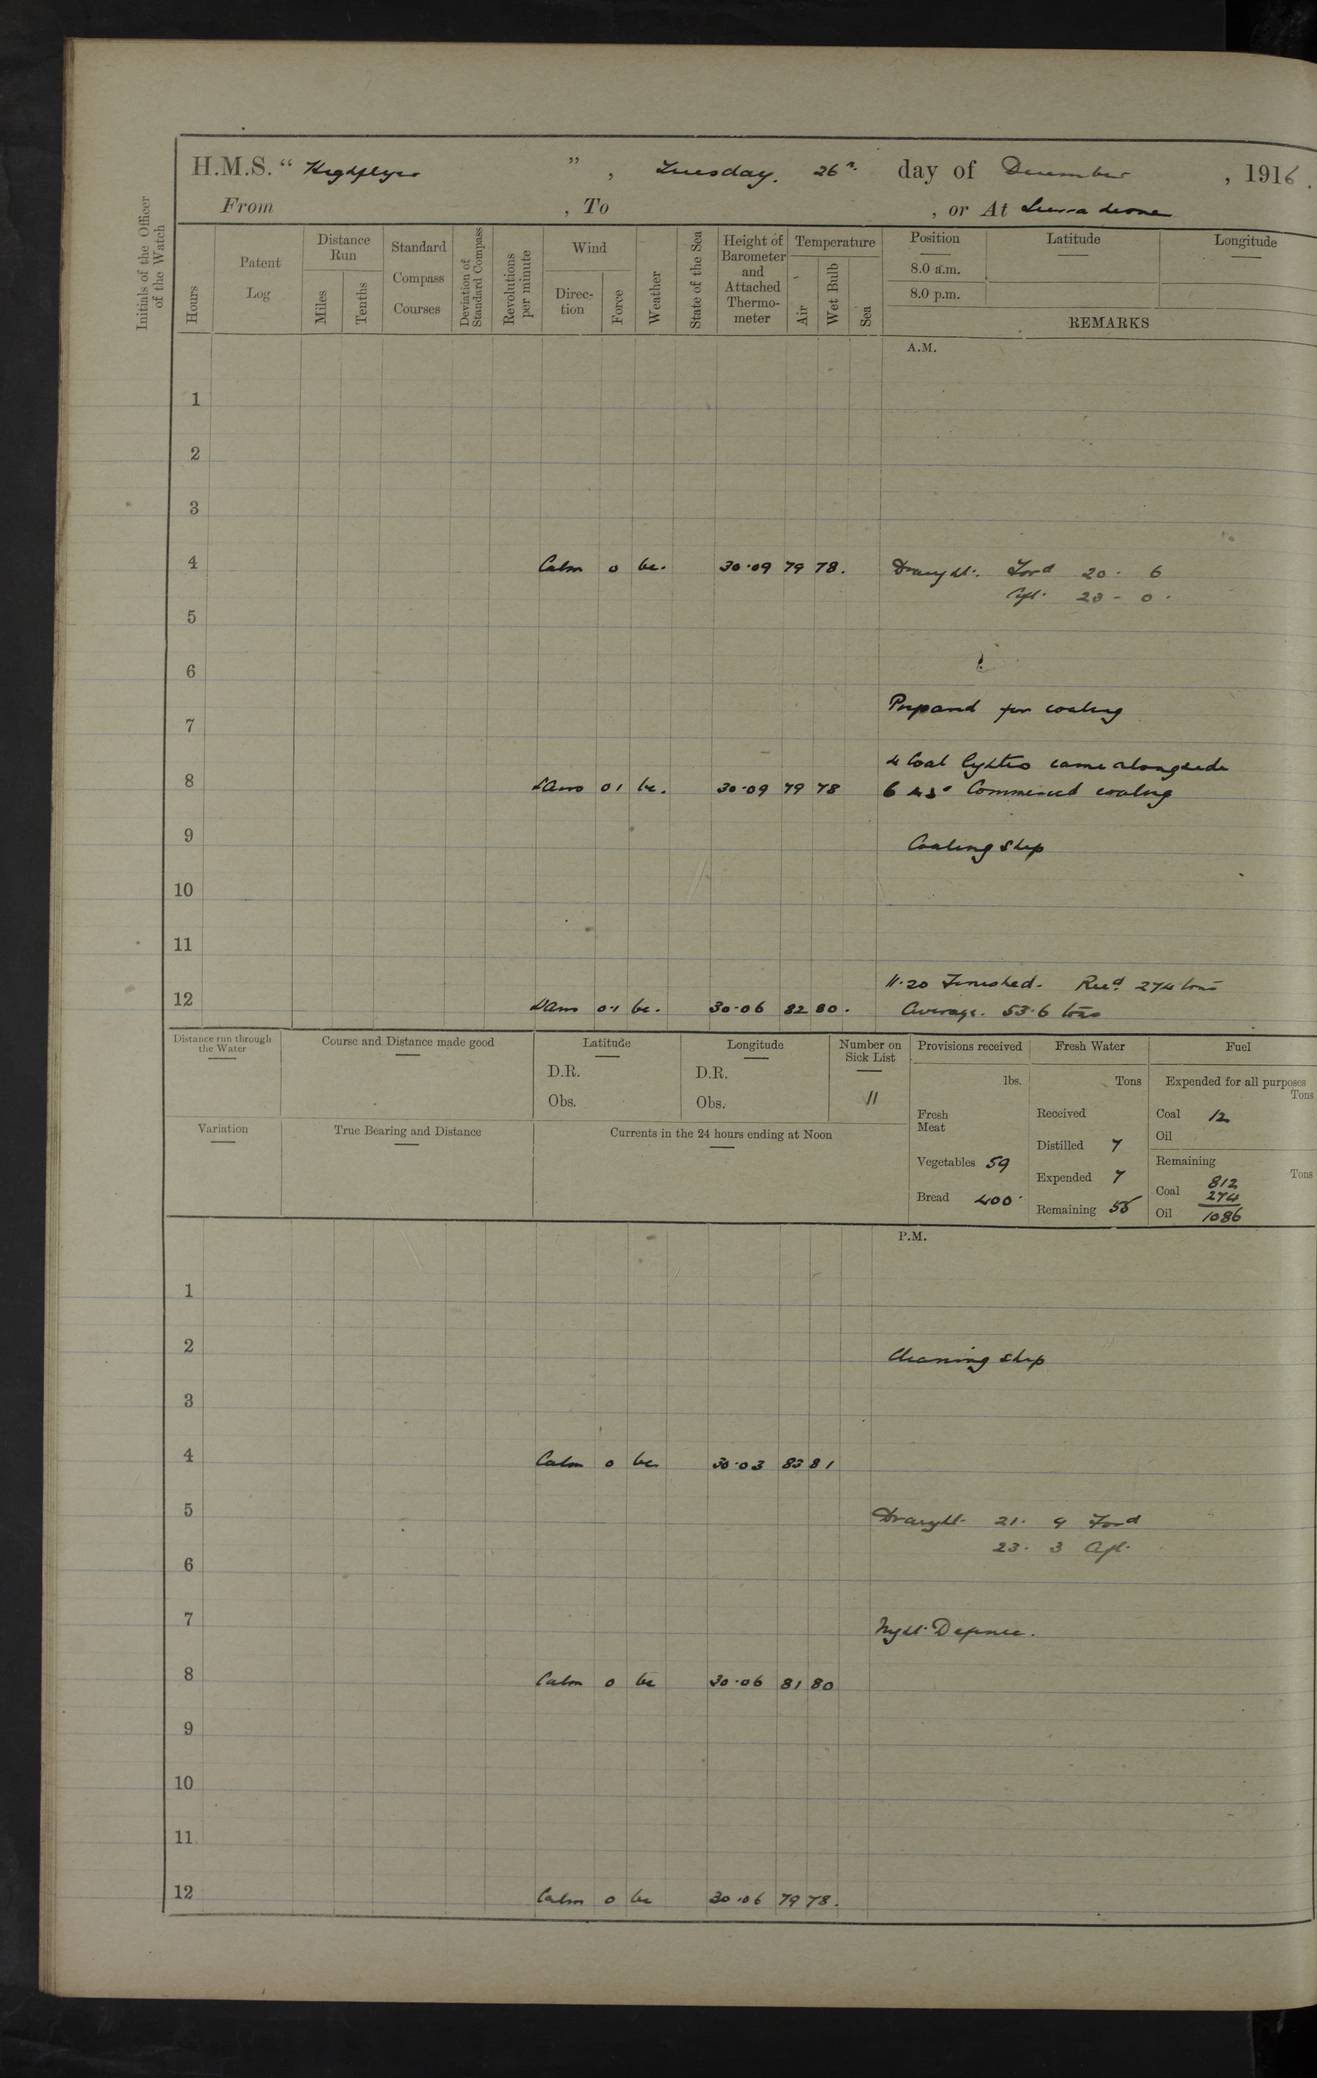 H.M.S. " Highflyer ", Tuesday. 26th day of December, 1916.
From , To , or At Sierra Leone
Initials of the Officer of the Watch
Hours
Patent Log
Distance Run
Miles
Tenths
Standard Compass Courses
Deviation of Standard Compass
Revolutions per minute
Wind
Direc-tion
Force
Weather
State of the Sea
Height of Barometer and Attached Thermo-meter
Temperature
Air
Wet Bulb
Sea
Position
Latitude
Longitude
8.0 a.m.
8.0 p.m.
REMARKS
A.M.
1
2
3
4 Calm 0 bc. 30.09 79 78. Draught. Ford 20. 6
Aft. 23 - 0.
5
6
Prepared for coaling
7
4 Coal lighters came alongside
8 Airs 01 bc. 30.09 79 78 6 45 Commenced coaling
9 Coaling Ship
10
11
11.20 Finished. Recd. 274 tons
12 Airs 0.1 bc. 30.06 82 80. Average. 53.6 tons
Distance run through the Water
Course and Distance made good
Latitude
D.R.
Obs.
Longitude
D.R.
Obs.
Number on Sick List
11
Provisions received
lbs.
Fresh Meat
Vegetables 59
Bread 400
Fresh Water
Tons
Received
Distilled 7
Expended 7
Remaining 55
Fuel
Expended for all purposes
Tons
Coal 12
Oil
Remaining
Tons
812
Coal 274
Oil 1086
Variation
True Bearing and Distance
Currents in the 24 hours ending at Noon
P.M.
1
2 Cleaning ship
3
4 Calm 0 bc 30.03 83 81
5 Draught. 21. 9 Ford
23. 3 Aft.
6
7 Night Defence.
8 Calm 0 bc 30.06 81 80
9
10
11
12 Calm 0 bc 30.06 79 78.